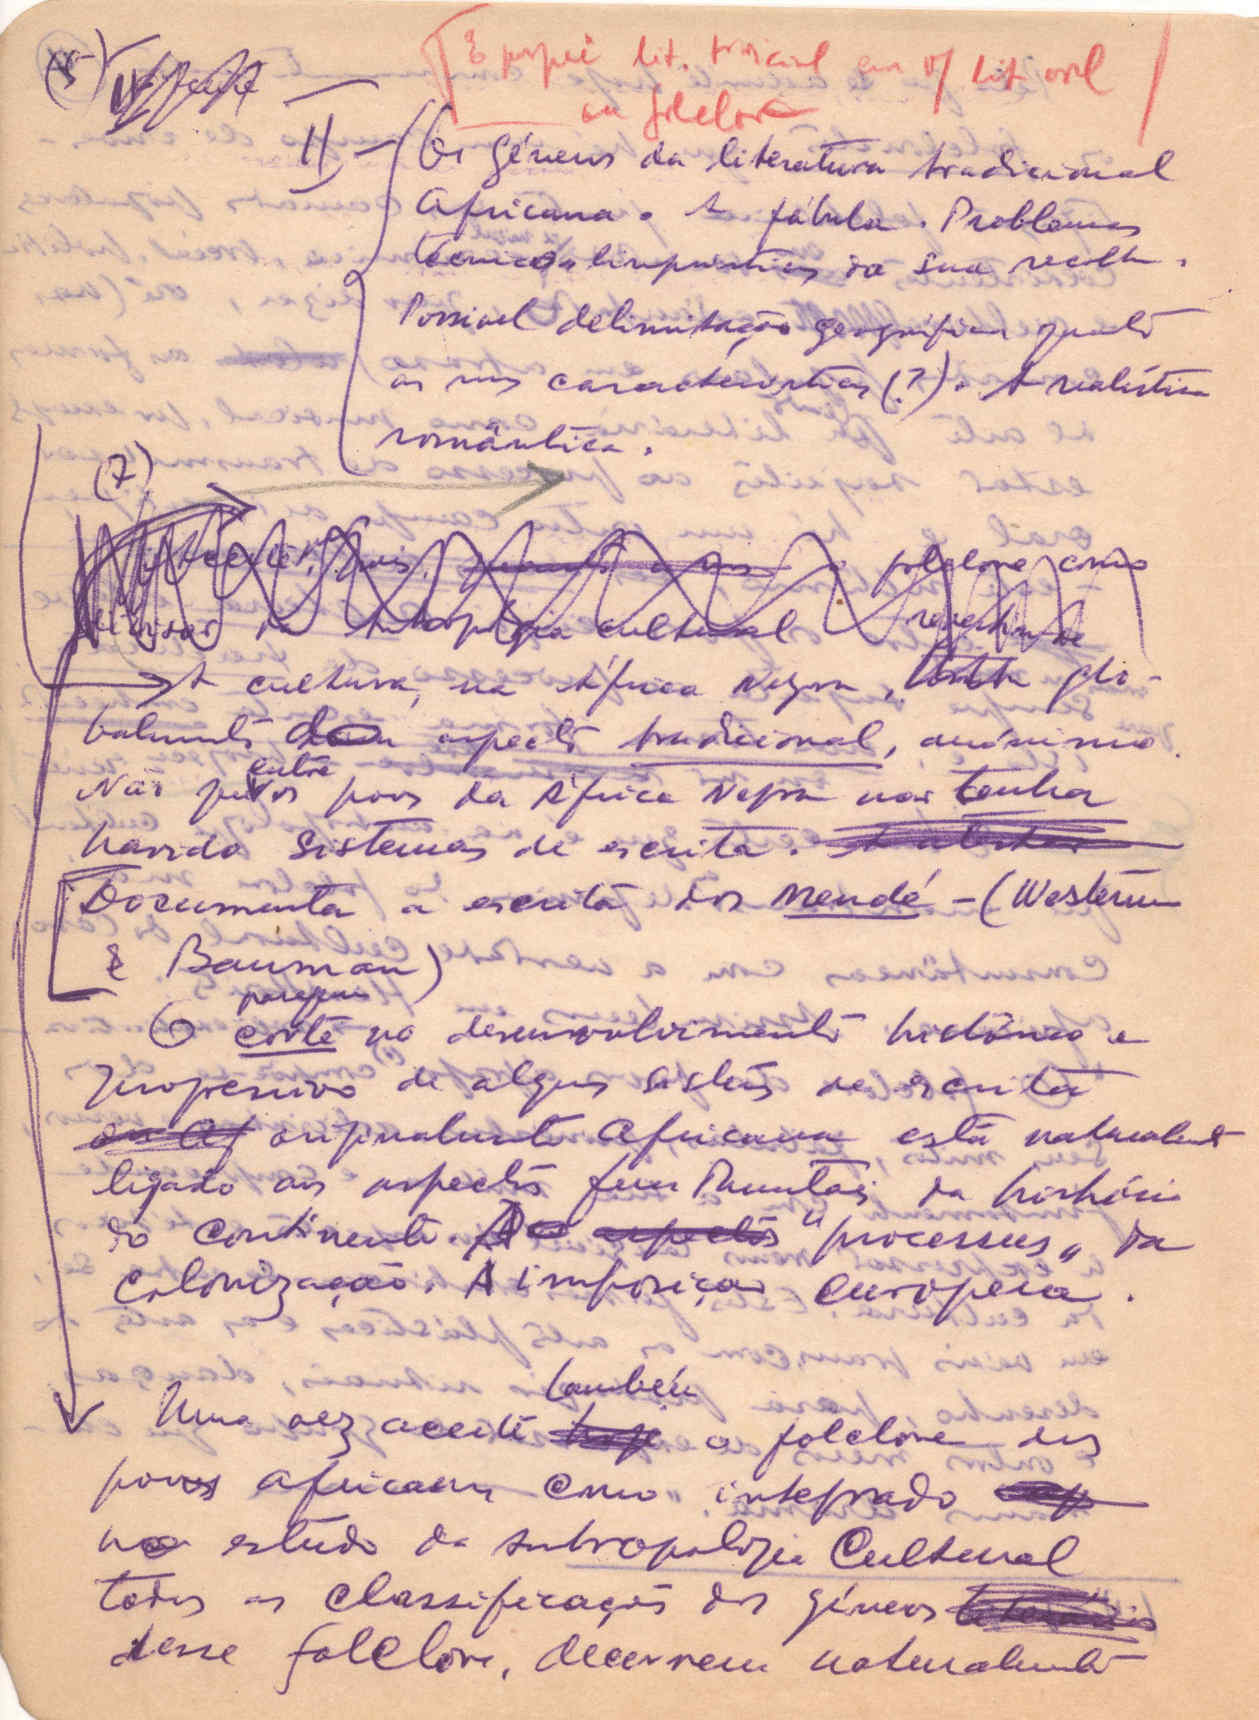 (5)
E porquê lit. tradicional em vez lit oral
ou folclore
II - Os géneros da literatura tradicional
Africana. A fábula. Problemas
técnicos linguísticos da sua recolha.
Possível delimitação geográfica quanto
às suas características (?). A realística
romântica.
(7)
o folclore como
divisão da Antropologia cultural
A cultura, na África Negra, reveste-se glo-
balmente aspecto tradicional, anónimo.
Não que entre os povos da África Negra não tenha
havido sistemas de escrita.
Documenta a escrita dos Mendé - (Westerman
& Bauman)
O corte no desenvolvimento histórico e
progressivo de alguns sistemas de escrita
originalmente Africana está naturalmente
ligado aos aspectos fundamentais da história
do continente. Ao aspectos "processus" da
Colonização. A imposição europeia.
Uma vez aceite também hoje o folclore dos
povos africanos como integrado
no estudo da Antropologia Cultural
todas as classificações dos géneros literários
desse folclore, decorrem naturalmente